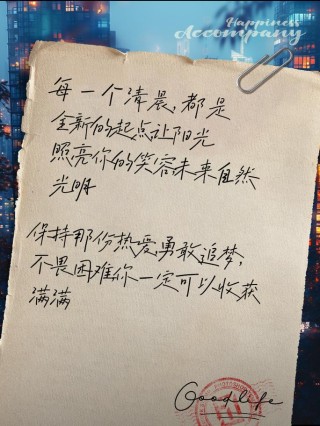 Happiness
Accompany
每一个清晨，都是
全新的起点让阳光
照亮你的笑容未来自然
光明
保持那份热爱勇敢追梦，
不畏困难你一定可以收获
满满
Goodlife